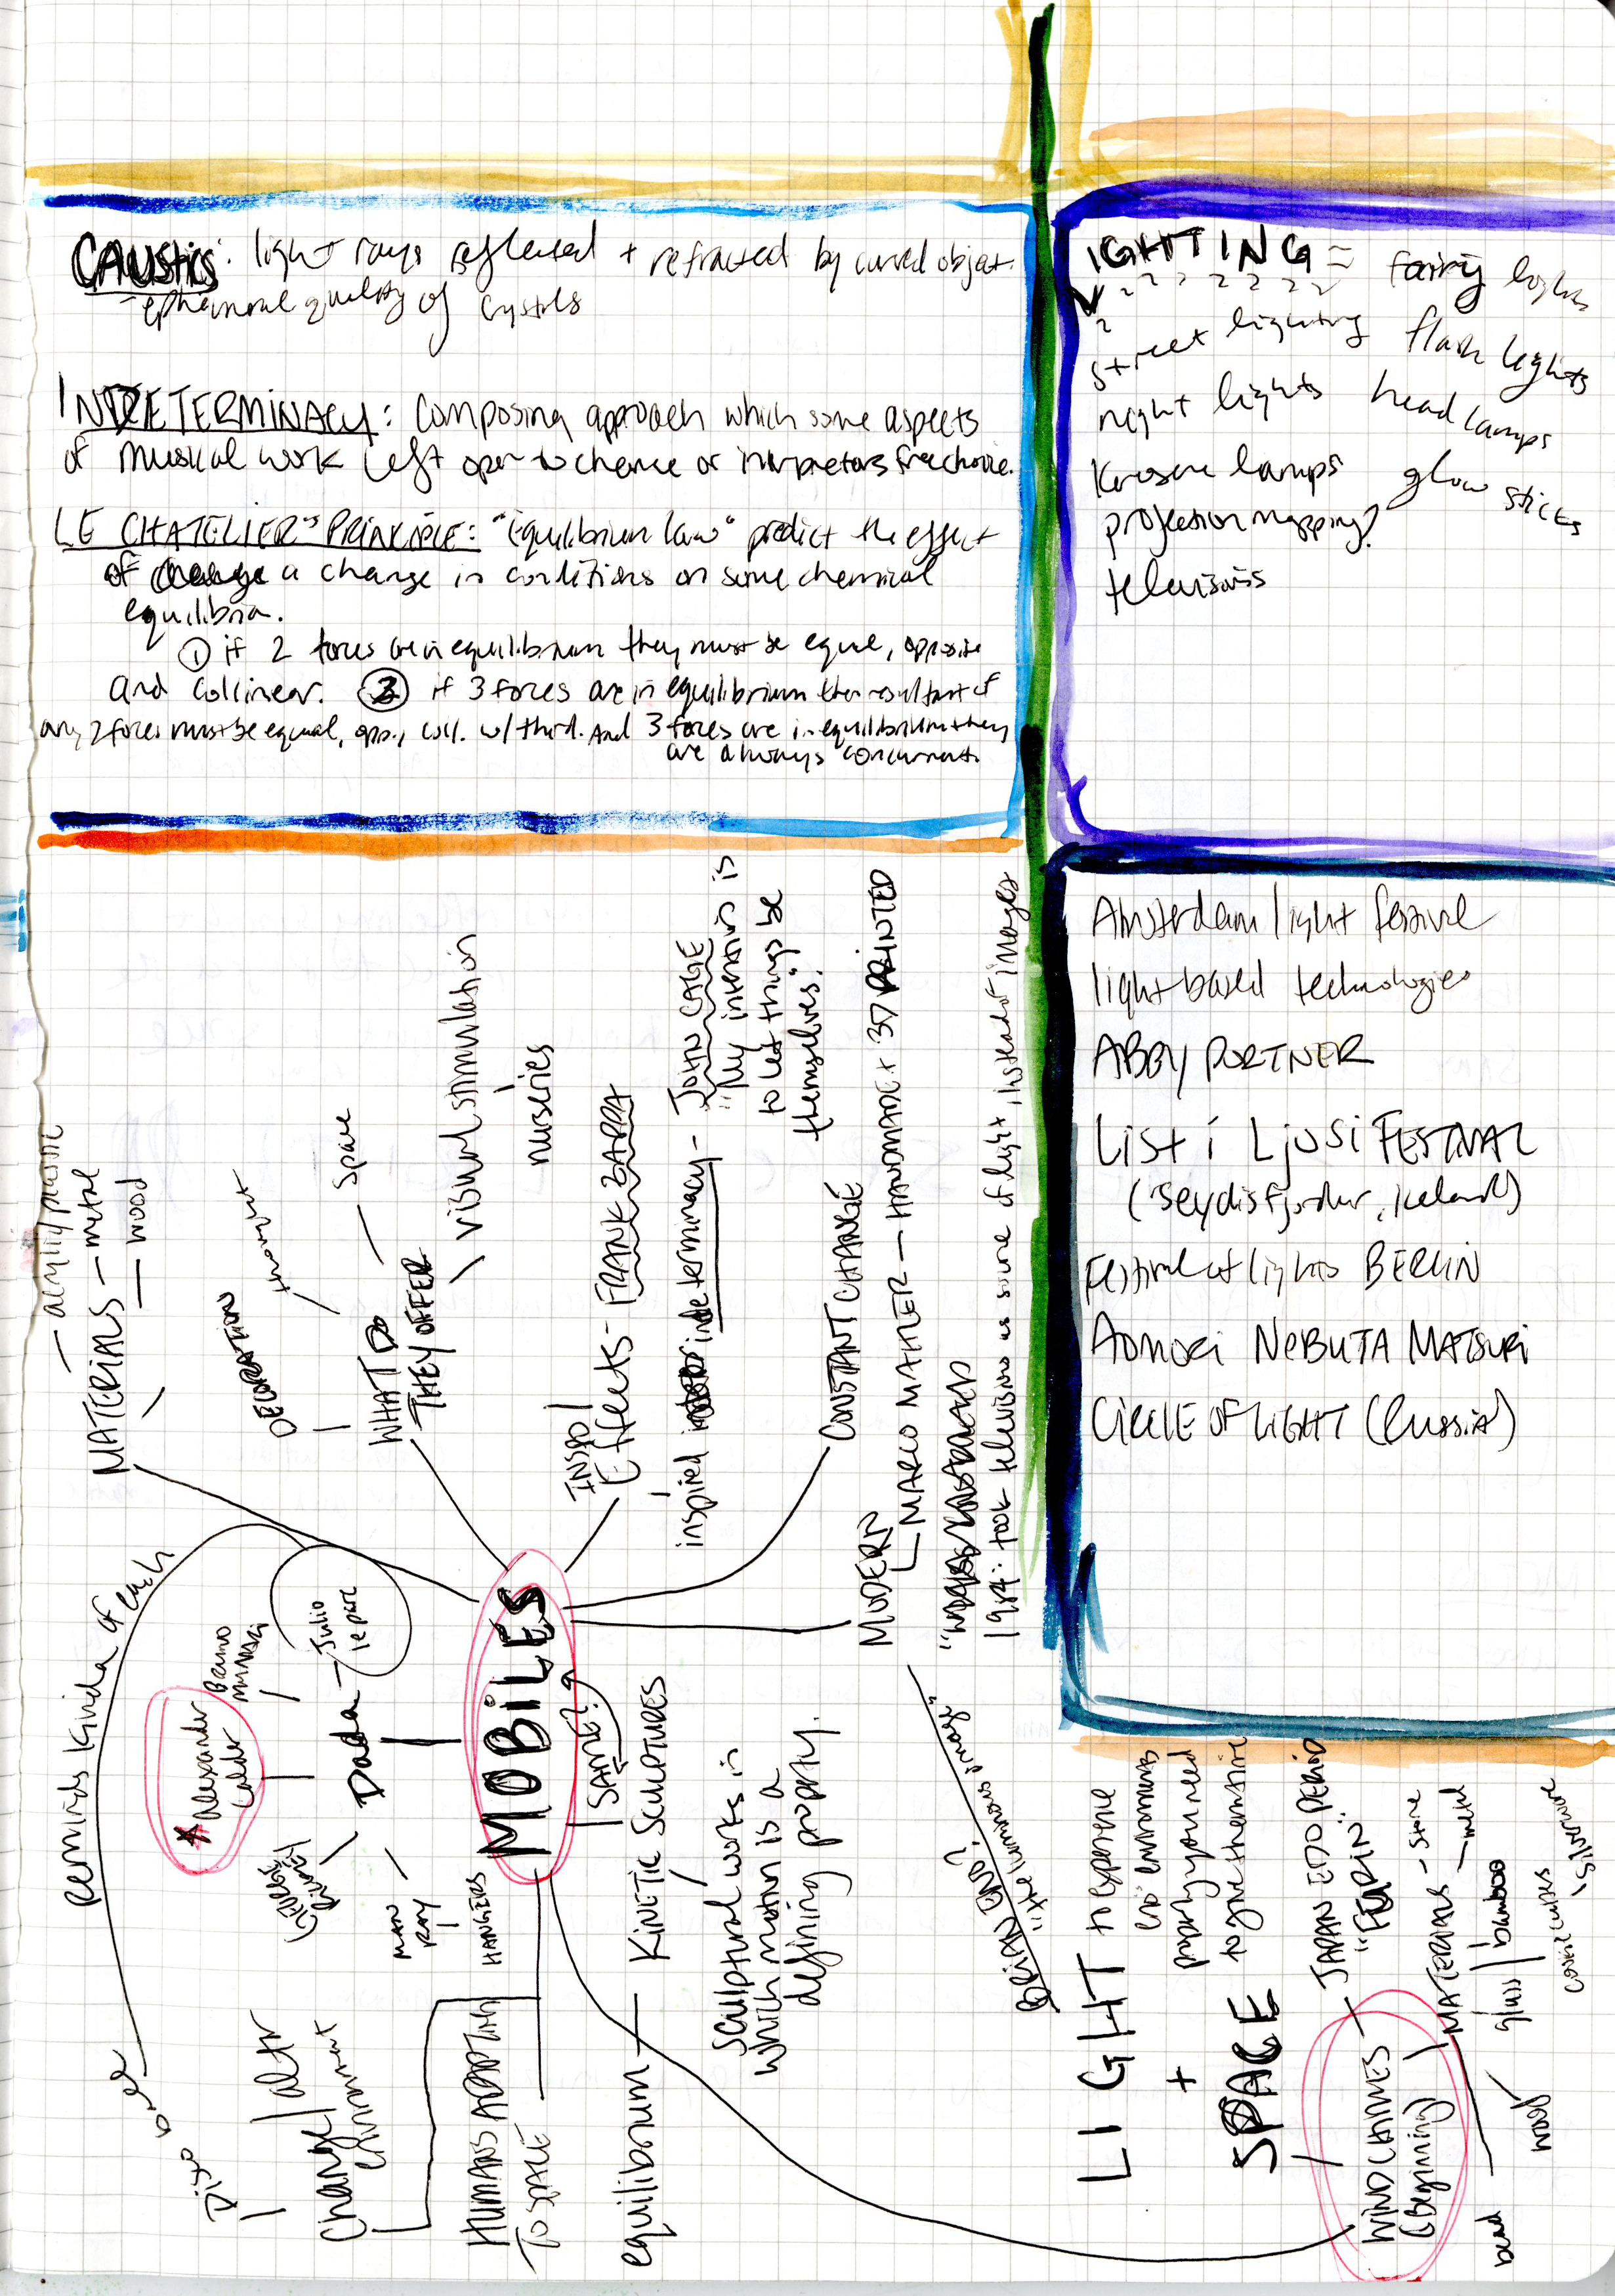 CAUSTICS: light rays reflected + refracted by curved object.
- ephemeral quality of crystals
INDETERMINACY: composing approach which some aspects
of musical work left open to chance or interpreters free choice.
LE CHATELIER'S PRINCIPLE: "Equilibrium law" predict the effect
of a change in conditions on some chemical
equilibria.
① if 2 forces are in equilibrium they must be equal, opposite
and collinear. ② if 3 forces are in equilibrium then resultant of
any 2 forces must be equal, opp., coll. w/ third. And 3 forces are in equilibrium they
are always concurrent.
LIGHTING = fairy lights
street lighting flash lights
night lights head lamps
Kerosene lamps glow sticks
projection mapping?
televisions
Amsterdam light festival
light based technologies
ABBY PORTNER
List i Ljosi FESTIVAL
(Seydisfjordur, Iceland)
Festival of lights BERLIN
AOMORI NEBUTA MATSURI
CIRCLE OF LIGHT (Russia)
MOBILES
MATERIALS
— acrylic/plastic
— metal
— wood
WHAT DO
THEY OFFER
DECORATION
movement
— space
visual stimulation
nurseries
INSPO
Effects - FRANK ZAPPA
inspired indeterminacy - JOHN CAGE
"My intention is
to let things be
themselves."
CONSTANT CHANGE
MODERN
MARCO MAHLER — HANDMADE + 3D PRINTED
1984: took televisions as source of light, instead of images
BRIAN ENO?
"the luminous image"
Dada
Julio
le parc
Bruno
Munari
★ Alexander
Calder
MAN
RAY
HANGERS
reminds kinda of each
Change/alter
environment
HUMANS ADAPTING
TO SPACE
SAME?
equilibrium — KINETIC SCULPTURES
sculptural works in
which motion is a
defining property.
LIGHT
+
SPACE
to experience
environments
properly you need
to give them time
WIND CHIMES
(Beginning)
JAPAN EDO PERIOD
"FURIN"
MATERIALS - stone
— metal
glass
bamboo
silverware
wood
bead